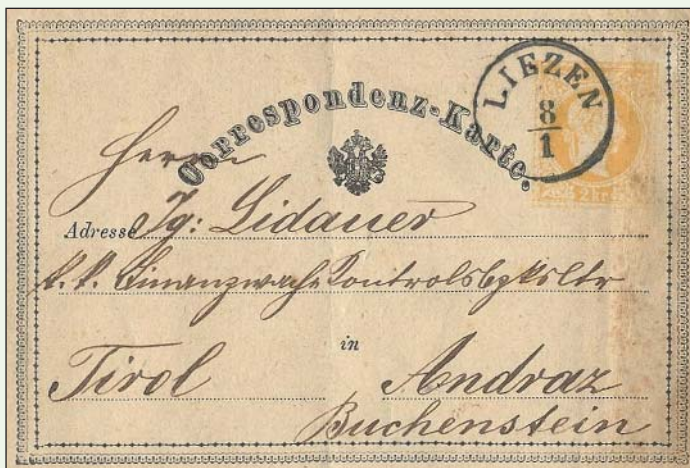 Correspondenz-Karte.
LIEZEN
8
1
2 kr
Herrn
Adresse Ig: Lidauer
k. k. Finanzwach
in
Tirol Andraz
Buchenstein